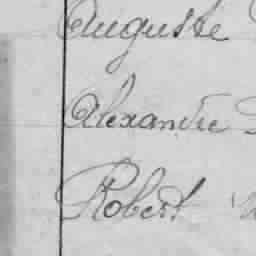 Auguste
Alexandre
Robert